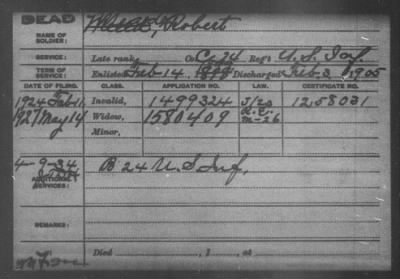 DEAD
NAME OF SOLDIER: Robert
SERVICE: Late rank, Co. 24 Reg't U.S. Inf.
TERM OF SERVICE: Enlisted Feb. 14 Discharged Feb. 3, 1905
DATE OF FILING. CLASS. APPLICATION NO. LAW. CERTIFICATE NO.
1924 Feb 11 Invalid, 1499324 1258031
1927 May 14 Widow, 1580409 M-26
Minor,
4-9-34
ADDITIONAL SERVICES: B 24 U.S. Inf,
REMARKS:
Died , 1 , at